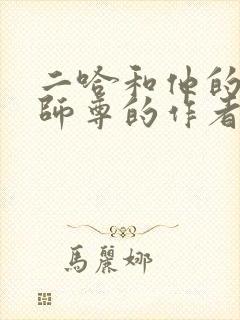 二哈和他的
師尊的作者
馬麗娜